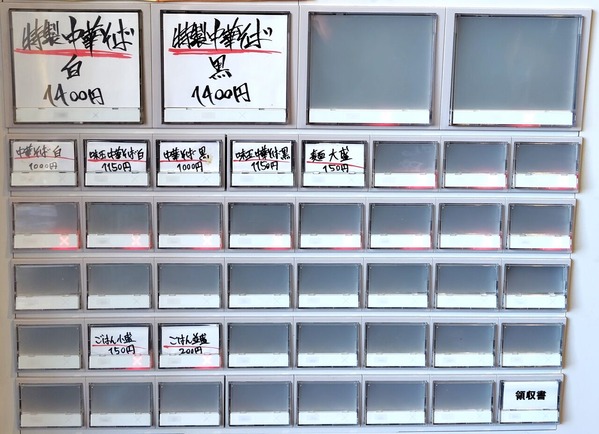 特製中華そば
白
1400円
特製中華そば
黒
1400円
中華そば 白
1000円
味玉中華そば白
1150円
中華そば 黒
1000円
味玉中華そば黒
1150円
麺 大盛
150円
ごはん小盛
150円
ごはん並盛
200円
領収書